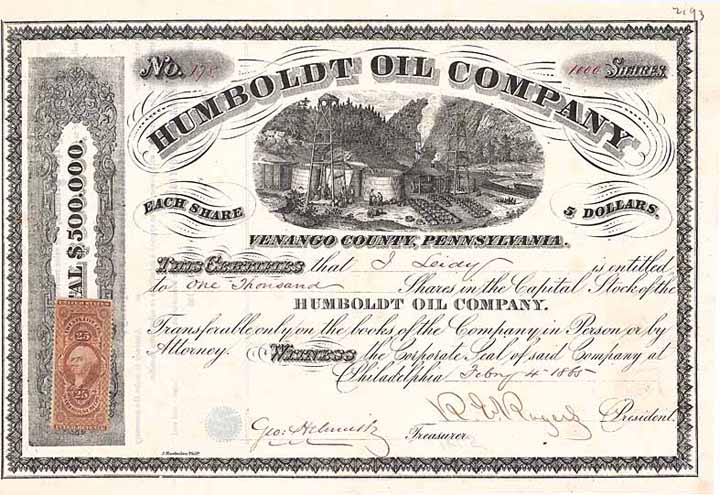 2193
No. 178
1000 Shares
HUMBOLDT OIL COMPANY
EACH SHARE 5 DOLLARS.
VENANGO COUNTY, PENNSYLVANIA.
This Certifies that J Leidy is entitled
to One Thousand Shares in the Capital Stock of the
HUMBOLDT OIL COMPANY.
Transferable only on the books of the Company in Person or by
Attorney. Witness the Corporate Seal of said Company at
Philadelphia Febry 4 1865
R. E. Rogers President.
Geo: Treasurer
AL $500,000.
25
25